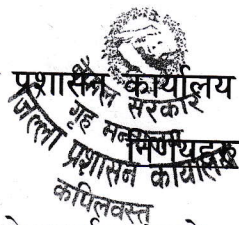 प्रशासन कार्यालय
नेपाल सरकार
गृह मन्त्रालय
निर्णयहरू
जिल्ला प्रशासन कार्यालय
कपिलवस्तु